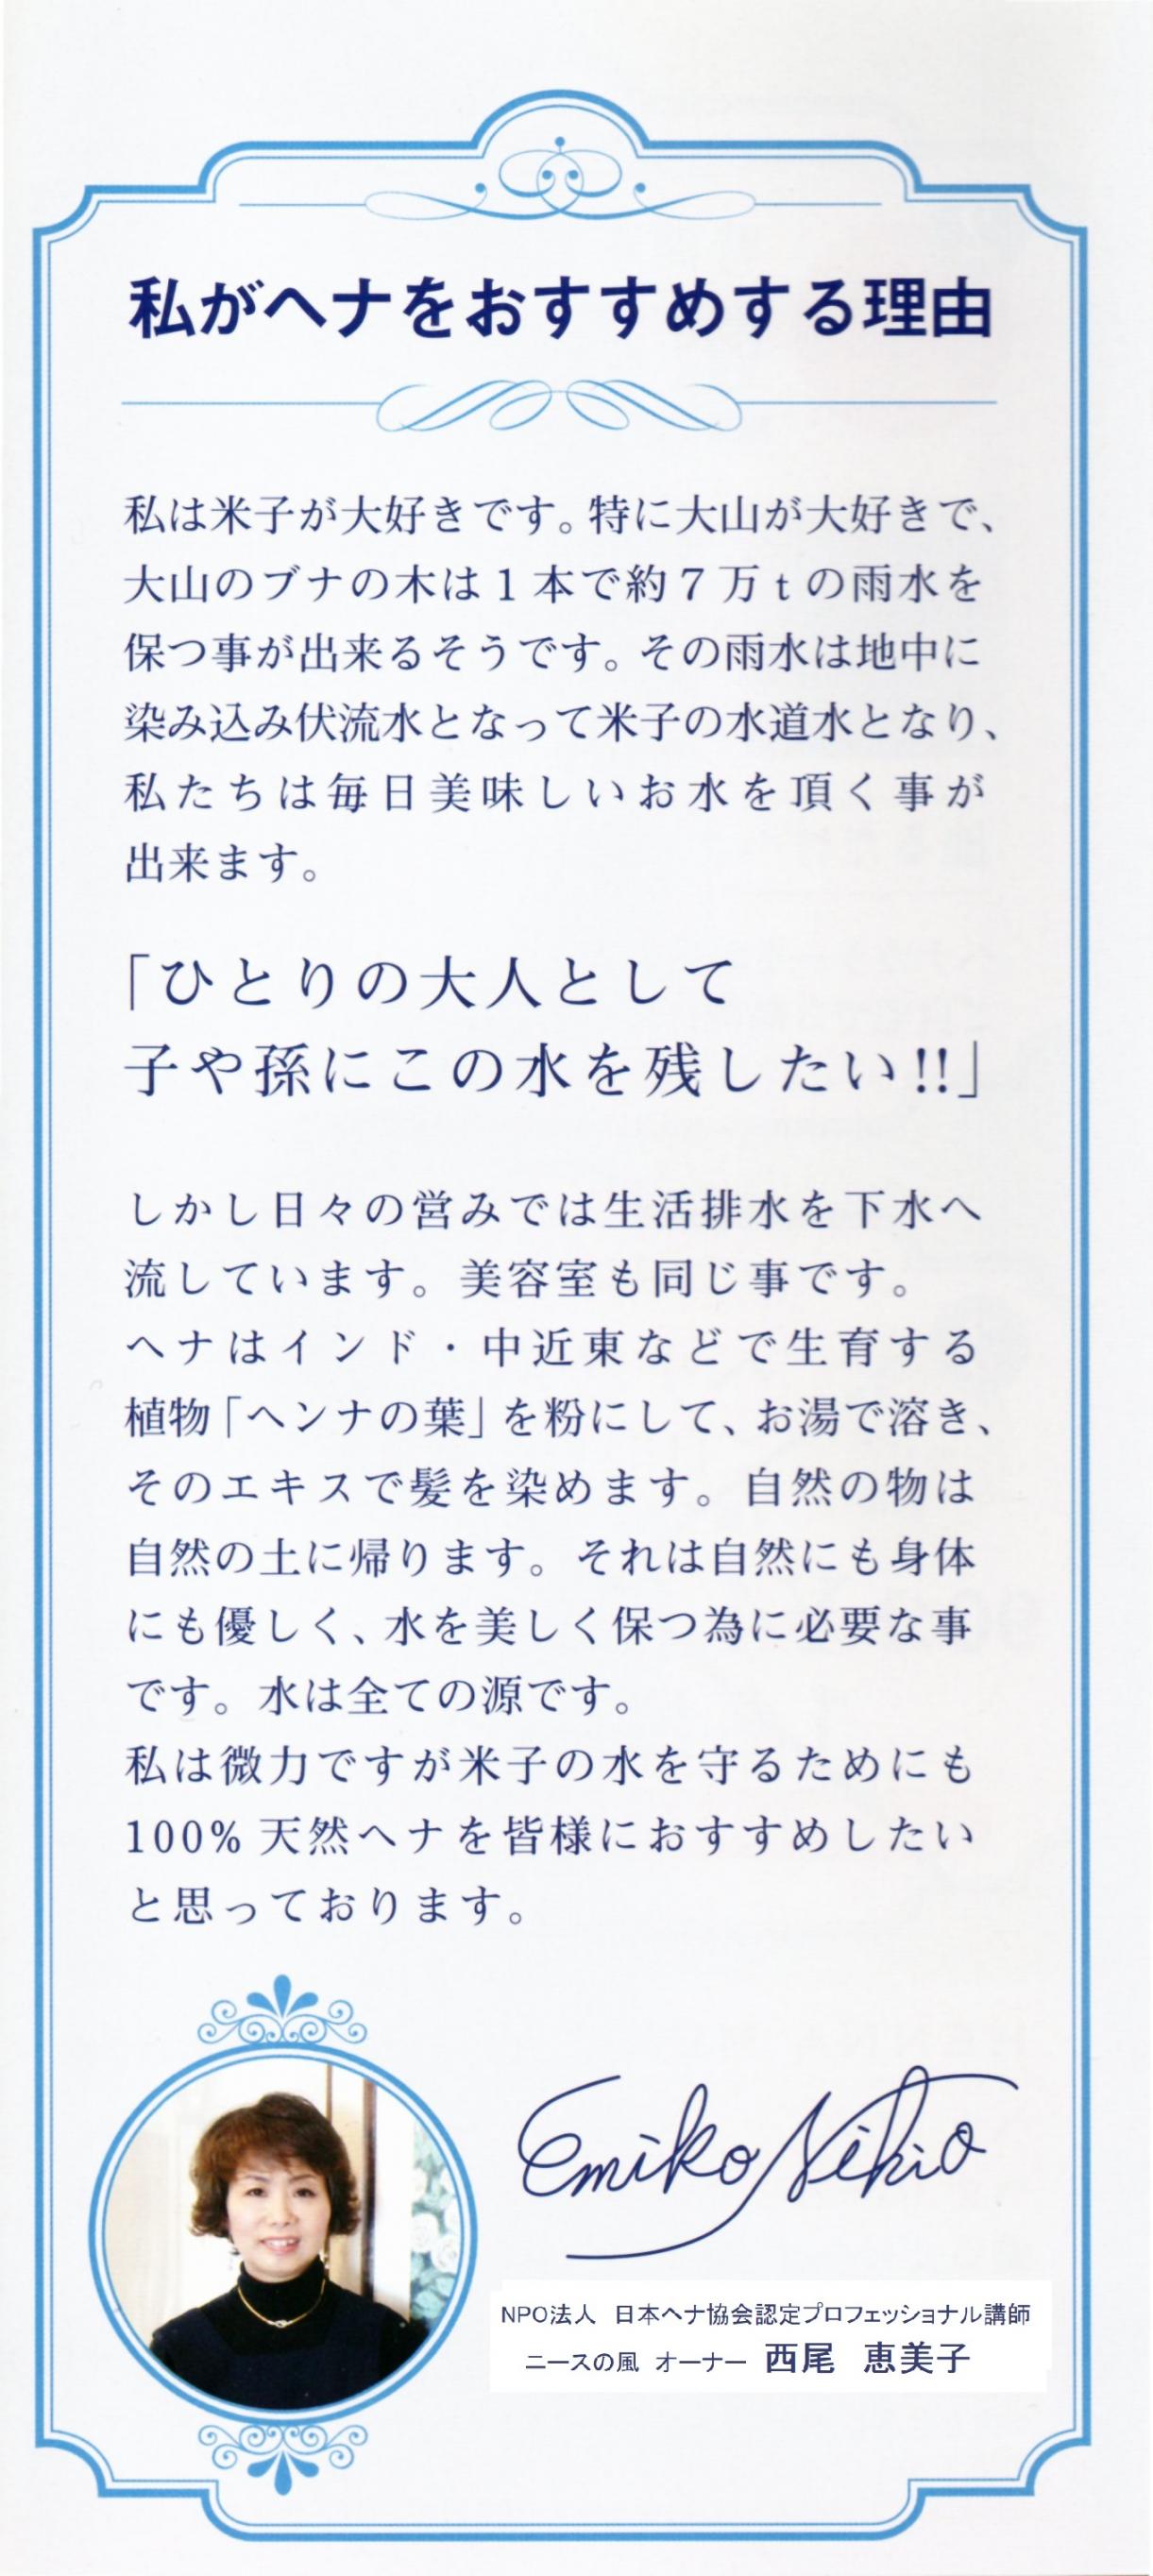 私がヘナをおすすめする理由
私は米子が大好きです。特に大山が大好きで、
大山のブナの木は1本で約7万tの雨水を
保つ事が出来るそうです。その雨水は地中に
染み込み伏流水となって米子の水道水となり、
私たちは毎日美味しいお水を頂く事が
出来ます。
「ひとりの大人として
子や孫にこの水を残したい!!」
しかし日々の営みでは生活排水を下水へ
流しています。美容室も同じ事です。
ヘナはインド・中近東などで生育する
植物「ヘンナの葉」を粉にして、お湯で溶き、
そのエキスで髪を染めます。自然の物は
自然の土に帰ります。それは自然にも身体
にも優しく、水を美しく保つ為に必要な事
です。水は全ての源です。
私は微力ですが米子の水を守るためにも
100% 天然ヘナを皆様におすすめしたい
と思っております。
Emiko Nishio
NPO法人 日本ヘナ協会認定プロフェッショナル講師
ニースの風 オーナー 西尾 恵美子